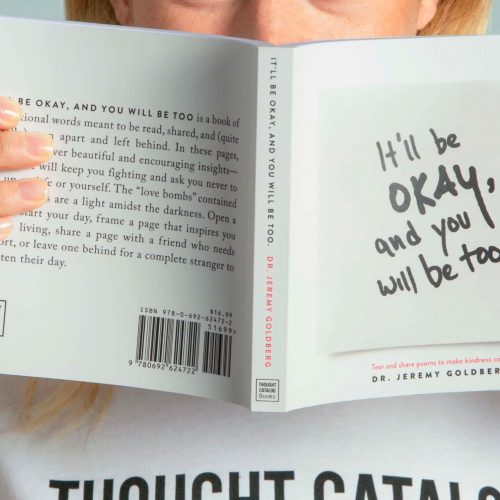 LL BE OKAY, AND YOU WILL BE TOO is a book of
tional words meant to be read, shared, and (quite
apart and left behind. In these pages,
ver beautiful and encouraging insights—
will keep you fighting and ask you never to
up life or yourself. The “love bombs” contained
are a light amidst the darkness. Open a
start your day, frame a page that inspires you
living, share a page with a friend who needs
ort, or leave one behind for a complete stranger to
ten their day.
$16.99
ISBN 978-0-692-62472-2
51699
9 780692 624722
IT'LL BE OKAY, AND YOU WILL BE TOO. DR. JEREMY GOLDBERG
THOUGHT
CATALOG
Books
It'll be
OKAY,
and you
will be too
Tear and share poems to make kindness co
DR. JEREMY GOLDBERG
THOUGHT CATALO